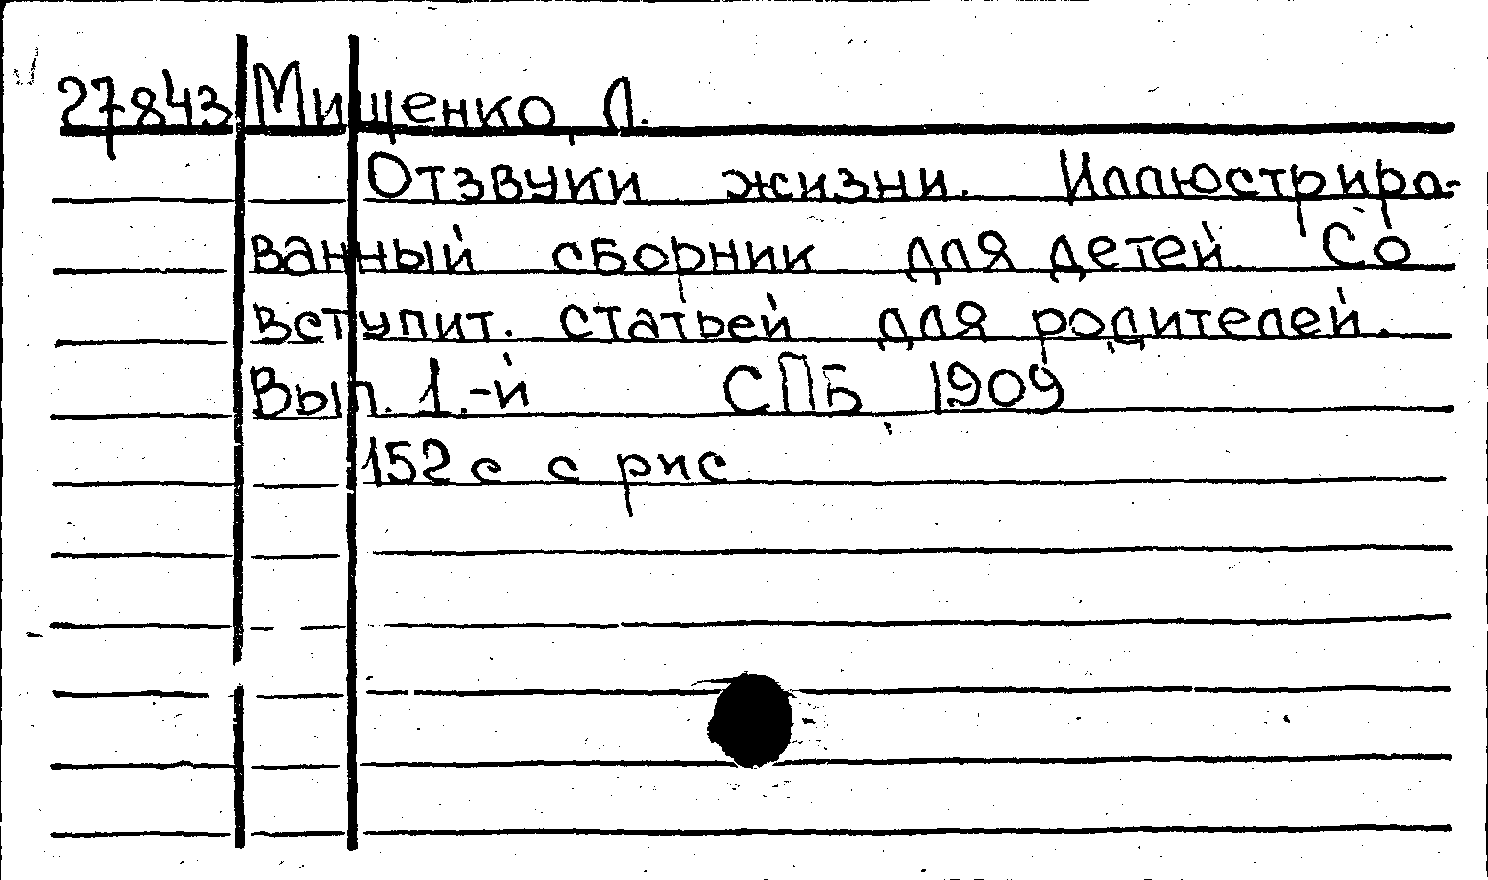 27843 Мищенко, Л.
Отзвуки жизни. Иллюстриро-
ванный сборник для детей. Со
вступит. статьей для родителей.
Вып. 1.-й СПБ, 1909
152 с с рис.